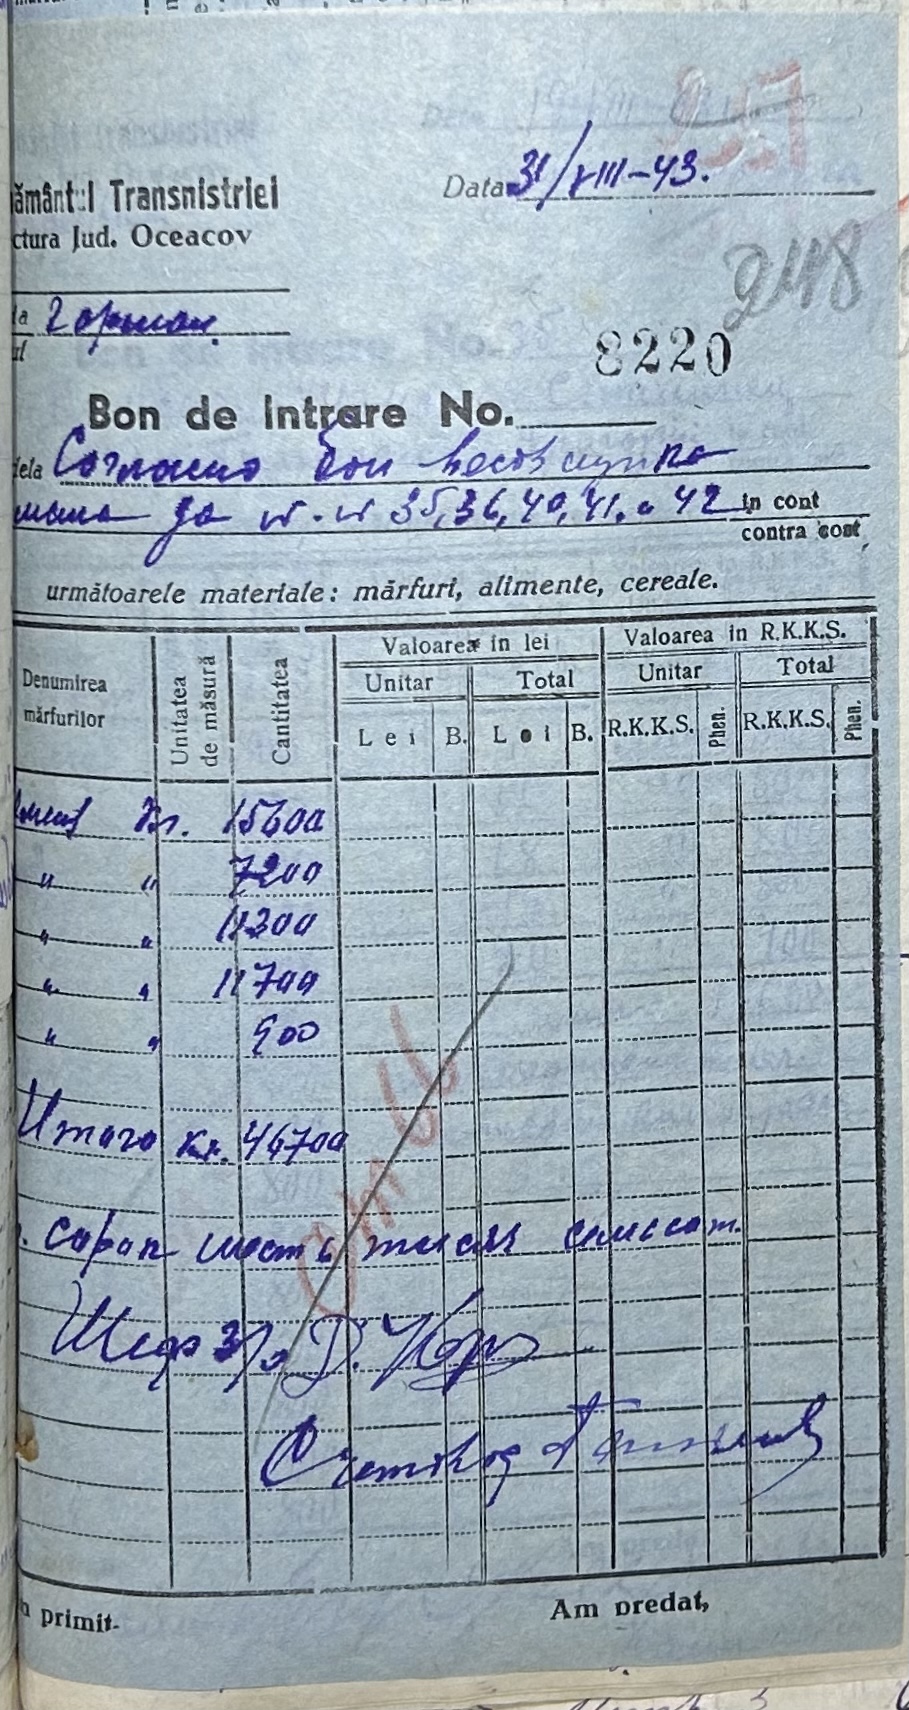 Data 31/VIII-43.
ământul Transnistriei
ctura Jud. Oceacov
248
la
ul
8220
Bon de intrare No.
dela Согласно бон
за № № 35, 36, 40, 41. и 42 in cont
contra cont
următoarele materiale: mărfuri, alimente, cereale.
Denumirea mărfurilor Unitatea de măsură Cantitatea Valoarea in lei Valoarea in R.K.K.S.
Unitar Total Unitar Total
Lei B. Lei B. R.K.K.S. Phen. R.K.K.S. Phen.
Кг. 15600
" " 7200
" " 11300
" " 11700
" " 900
Итого кг. 46700
сорок шесть тысяч семьсот.
Шеф
Счетовод
primit.
Am predat,